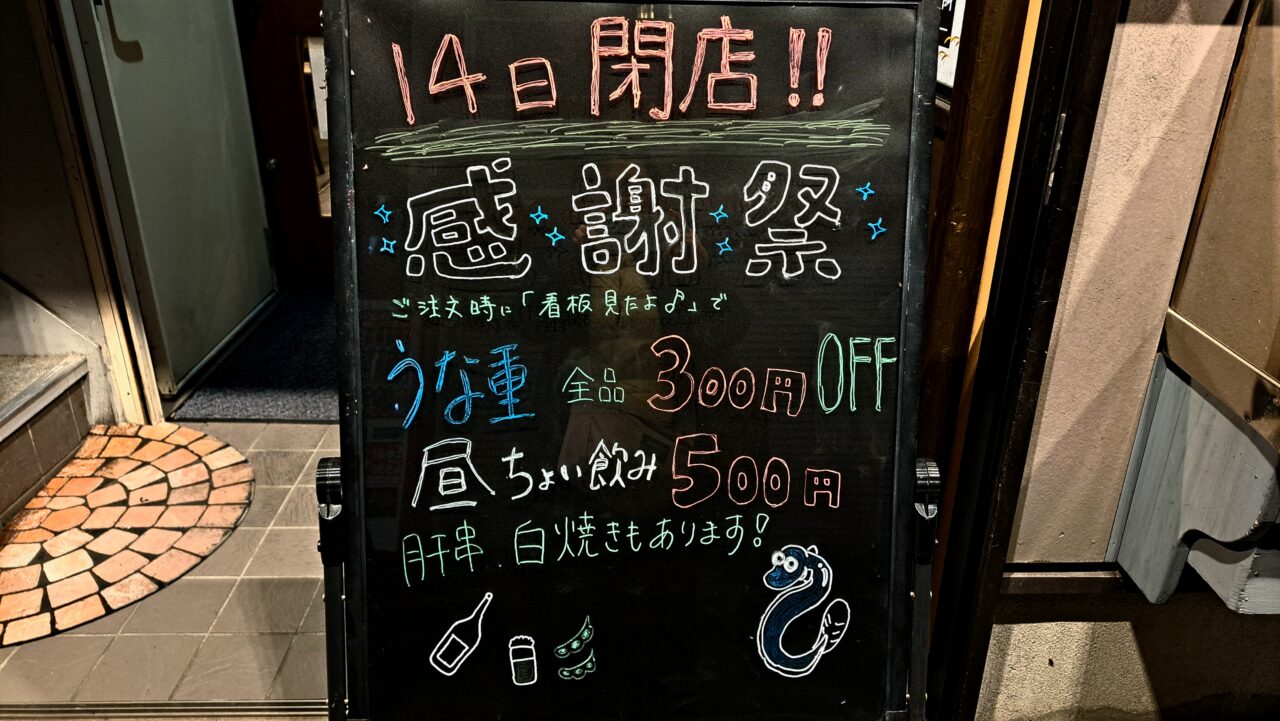 14日 閉店!!
感謝祭
ご注文時に「看板見たよ♪」で
うな重 全品 300円 OFF
昼 ちょい飲み 500円
肝串、白焼きもあります!